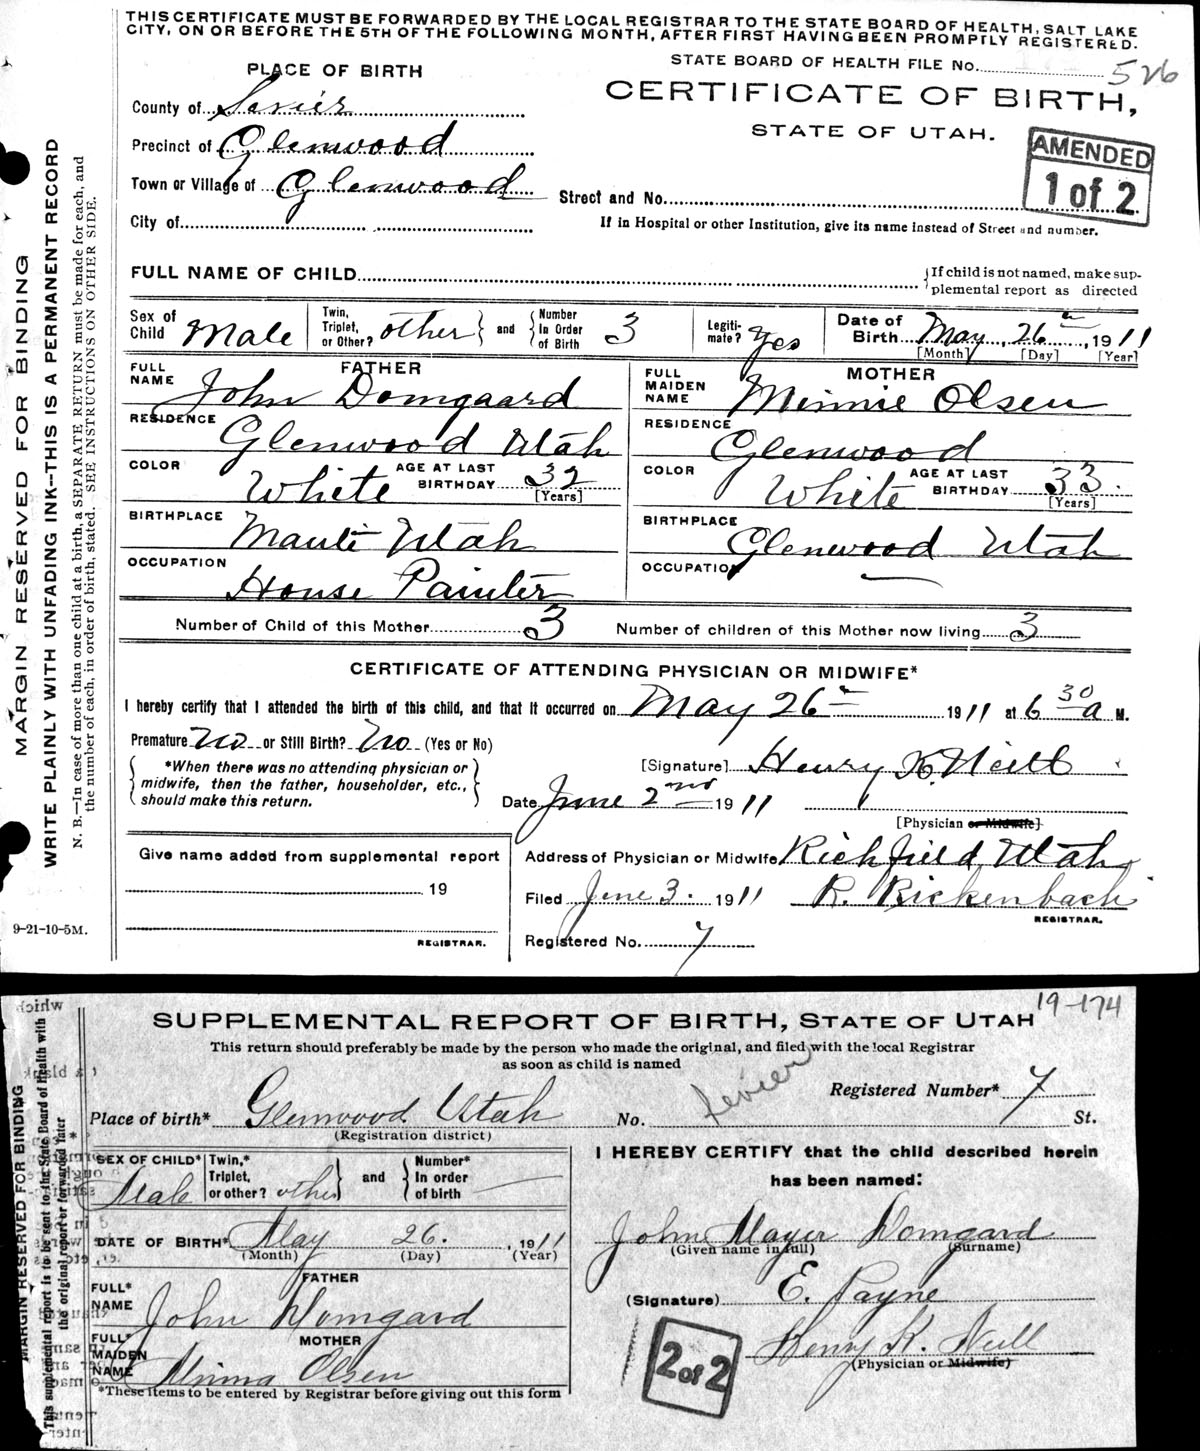 THIS CERTIFICATE MUST BE FORWARDED BY THE LOCAL REGISTRAR TO THE STATE BOARD OF HEALTH, SALT LAKE
CITY, ON OR BEFORE THE 5TH OF THE FOLLOWING MONTH, AFTER FIRST HAVING BEEN PROMPTLY REGISTERED.
STATE BOARD OF HEALTH FILE NO. 526
PLACE OF BIRTH
CERTIFICATE OF BIRTH,
STATE OF UTAH.
AMENDED
1 of 2
County of Sevier
Precinct of Glenwood
Town or Village of Glenwood
Street and No.
City of
If in Hospital or other Institution, give its name instead of Street and number.
FULL NAME OF CHILD
If child is not named, make sup-
plemental report as directed
Sex of Child Male
Twin, Triplet, or Other? other
and
Number In Order of Birth 3
Legiti-mate? Yes
Date of Birth May 26th, 1911
[Month] [Day] [Year]
FATHER
FULL NAME John Domgaard
RESIDENCE Glenwood Utah
COLOR White AGE AT LAST BIRTHDAY 32 [Years]
BIRTHPLACE Manti Utah
OCCUPATION House Painter
MOTHER
FULL MAIDEN NAME Minnie Olsen
RESIDENCE Glenwood
COLOR White AGE AT LAST BIRTHDAY 33. [Years]
BIRTHPLACE Glenwood Utah
OCCUPATION —
Number of Child of this Mother 3 Number of children of this Mother now living 3
CERTIFICATE OF ATTENDING PHYSICIAN OR MIDWIFE*
I hereby certify that I attended the birth of this child, and that it occurred on May 26th 1911 at 6 30 a M.
Premature No or Still Birth? No (Yes or No)
*When there was no attending physician or
midwife, then the father, householder, etc.,
should make this return.
[Signature] Henry K. Neill
Date June 2nd 1911
[Physician or Midwife]
Give name added from supplemental report
19
REGISTRAR.
Address of Physician or Midwife Richfield, Utah
Filed June 3. 1911 R. Rickenbach
REGISTRAR.
Registered No. 7
9-21-10-5M.
MARGIN RESERVED FOR BINDING
WRITE PLAINLY WITH UNFADING INK--THIS IS A PERMANENT RECORD
N. B.—In case of more than one child at a birth, a SEPARATE RETURN must be made for each, and
the number of each, in order of birth, stated. SEE INSTRUCTIONS ON OTHER SIDE.
19-174
SUPPLEMENTAL REPORT OF BIRTH, STATE OF UTAH
This return should preferably be made by the person who made the original, and filed with the local Registrar
as soon as child is named
Sevier
Registered Number* 7
Place of birth* Glenwood. Utah No. St.
(Registration district)
SEX OF CHILD* Male
Twin,* Triplet, or other? other
and
Number* In order of birth —
DATE OF BIRTH* May 26. , 1911
(Month) (Day) (Year)
FATHER
FULL* NAME John Domgard
MOTHER
FULL* MAIDEN NAME Minna Olsen
*These items to be entered by Registrar before giving out this form
I HEREBY CERTIFY that the child described herein
has been named:
John Mayer Domgard
(Given name in full) (Surname)
(Signature) E. Payne
Henry K. Neill
(Physician or Midwife)
2 of 2
MARGIN RESERVED FOR BINDING
This supplemental report is to be sent to the State Board of Health with
the original report or forwarded later